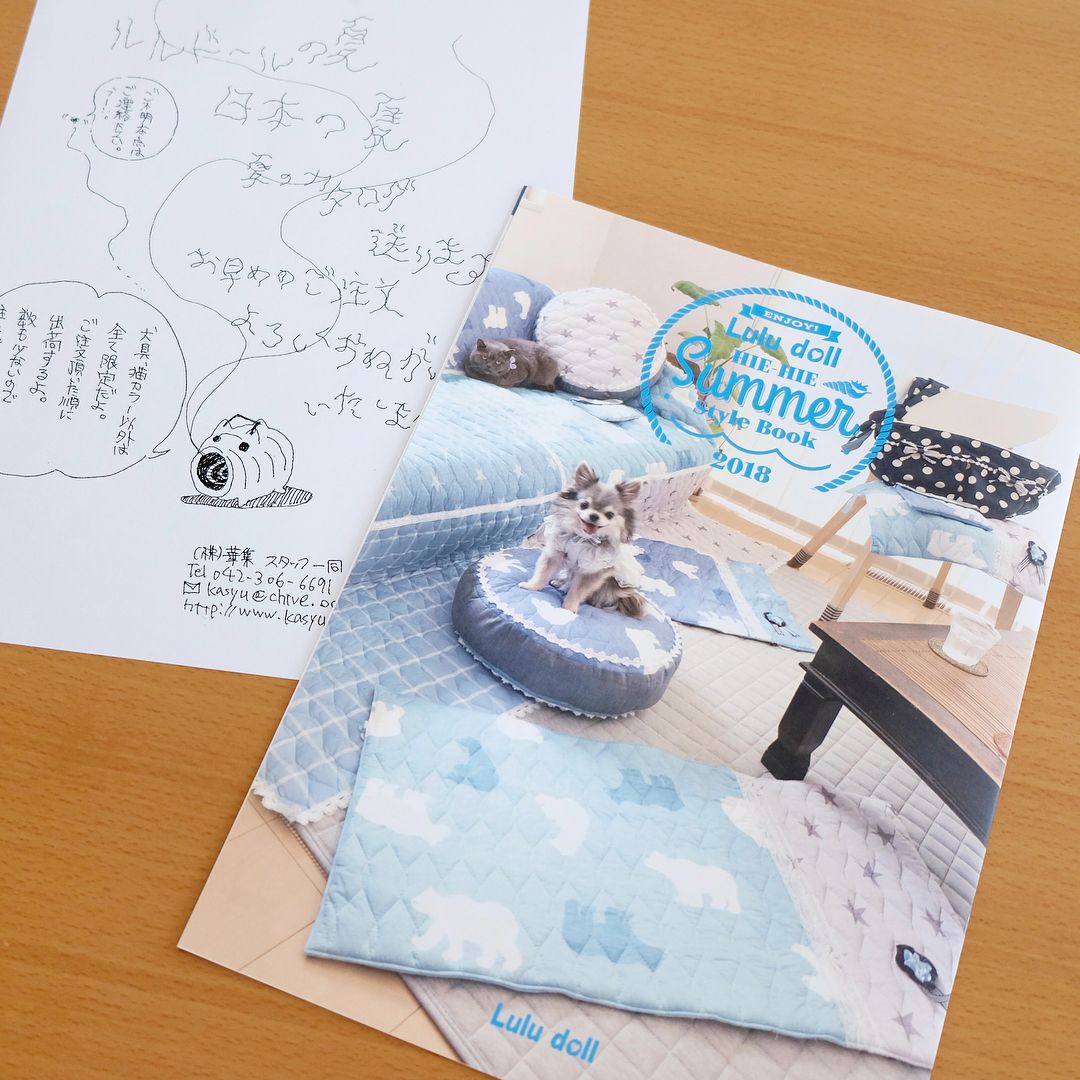 ルルドールの夏
日本の夏
夏のカタログ
送ります
お早めのご注文
よろしくおねがい
いたします
ご不明な点は
ご連絡下さい。
犬具、猫カラー以外は
全て限定だよ。
ご注文頂いた順に
出荷するよ。
数も少ないので
(株)華集 スタッフ一同
Tel 042-306-6691
kasyu@chive.
http://www.kasyu
ENJOY!
Lulu doll
HIE-HIE
Summer
Style Book
2018
Lulu doll